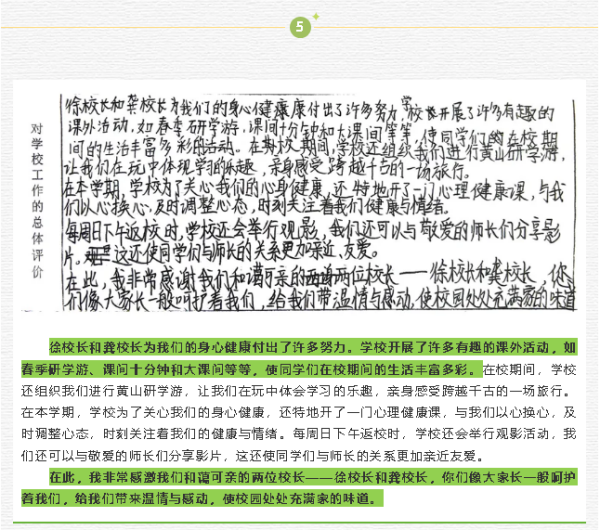 5
对学校工作的总体评价
徐校长和龚校长为我们的身心健康付出了许多努力,学校开展了许多有趣的
课外活动,如春季研学游,课间十分钟和大课间等等,使同学们的在校期
间的生活丰富多彩的活动。在期校期间,学校还组织我们进行黄山研学游,
让我们在玩中体现学习的乐趣,亲身感受跨越千古的一场旅行。
在本学期,学校为了关心我们的心身健康,还特地开了一门心理健康课,与我
们以心换心,及时调整心态,时刻关注着我们健康与情绪。
每周日下午返校时,学校还会举行观影,我们还可以与敬爱的师长们分享影
片。这还使同学们与师长的关系更加亲近、友爱。
在此,我非常感谢我们和蔼可亲的两位校长——徐校长和龚校长,你
们像大家长一般呵护着我们,给我们带温情与感动,使校园处处充满家的味道
徐校长和龚校长为我们的身心健康付出了许多努力。学校开展了许多有趣的课外活动,如
春季研学游、课间十分钟和大课间等等,使同学们在校期间的生活丰富多彩。在校期间,学校
还组织我们进行黄山研学游,让我们在玩中体会学习的乐趣,亲身感受跨越千古的一场旅行。
在本学期,学校为了关心我们的身心健康,还特地开了一门心理健康课,与我们以心换心,及
时调整心态,时刻关注着我们的健康与情绪。每周日下午返校时,学校还会举行观影活动,我
们还可以与敬爱的师长们分享影片,这还使同学们与师长的关系更加亲近友爱。
在此,我非常感激我们和蔼可亲的两位校长——徐校长和龚校长,你们像大家长一般呵护
着我们,给我们带来温情与感动,使校园处处充满家的味道。